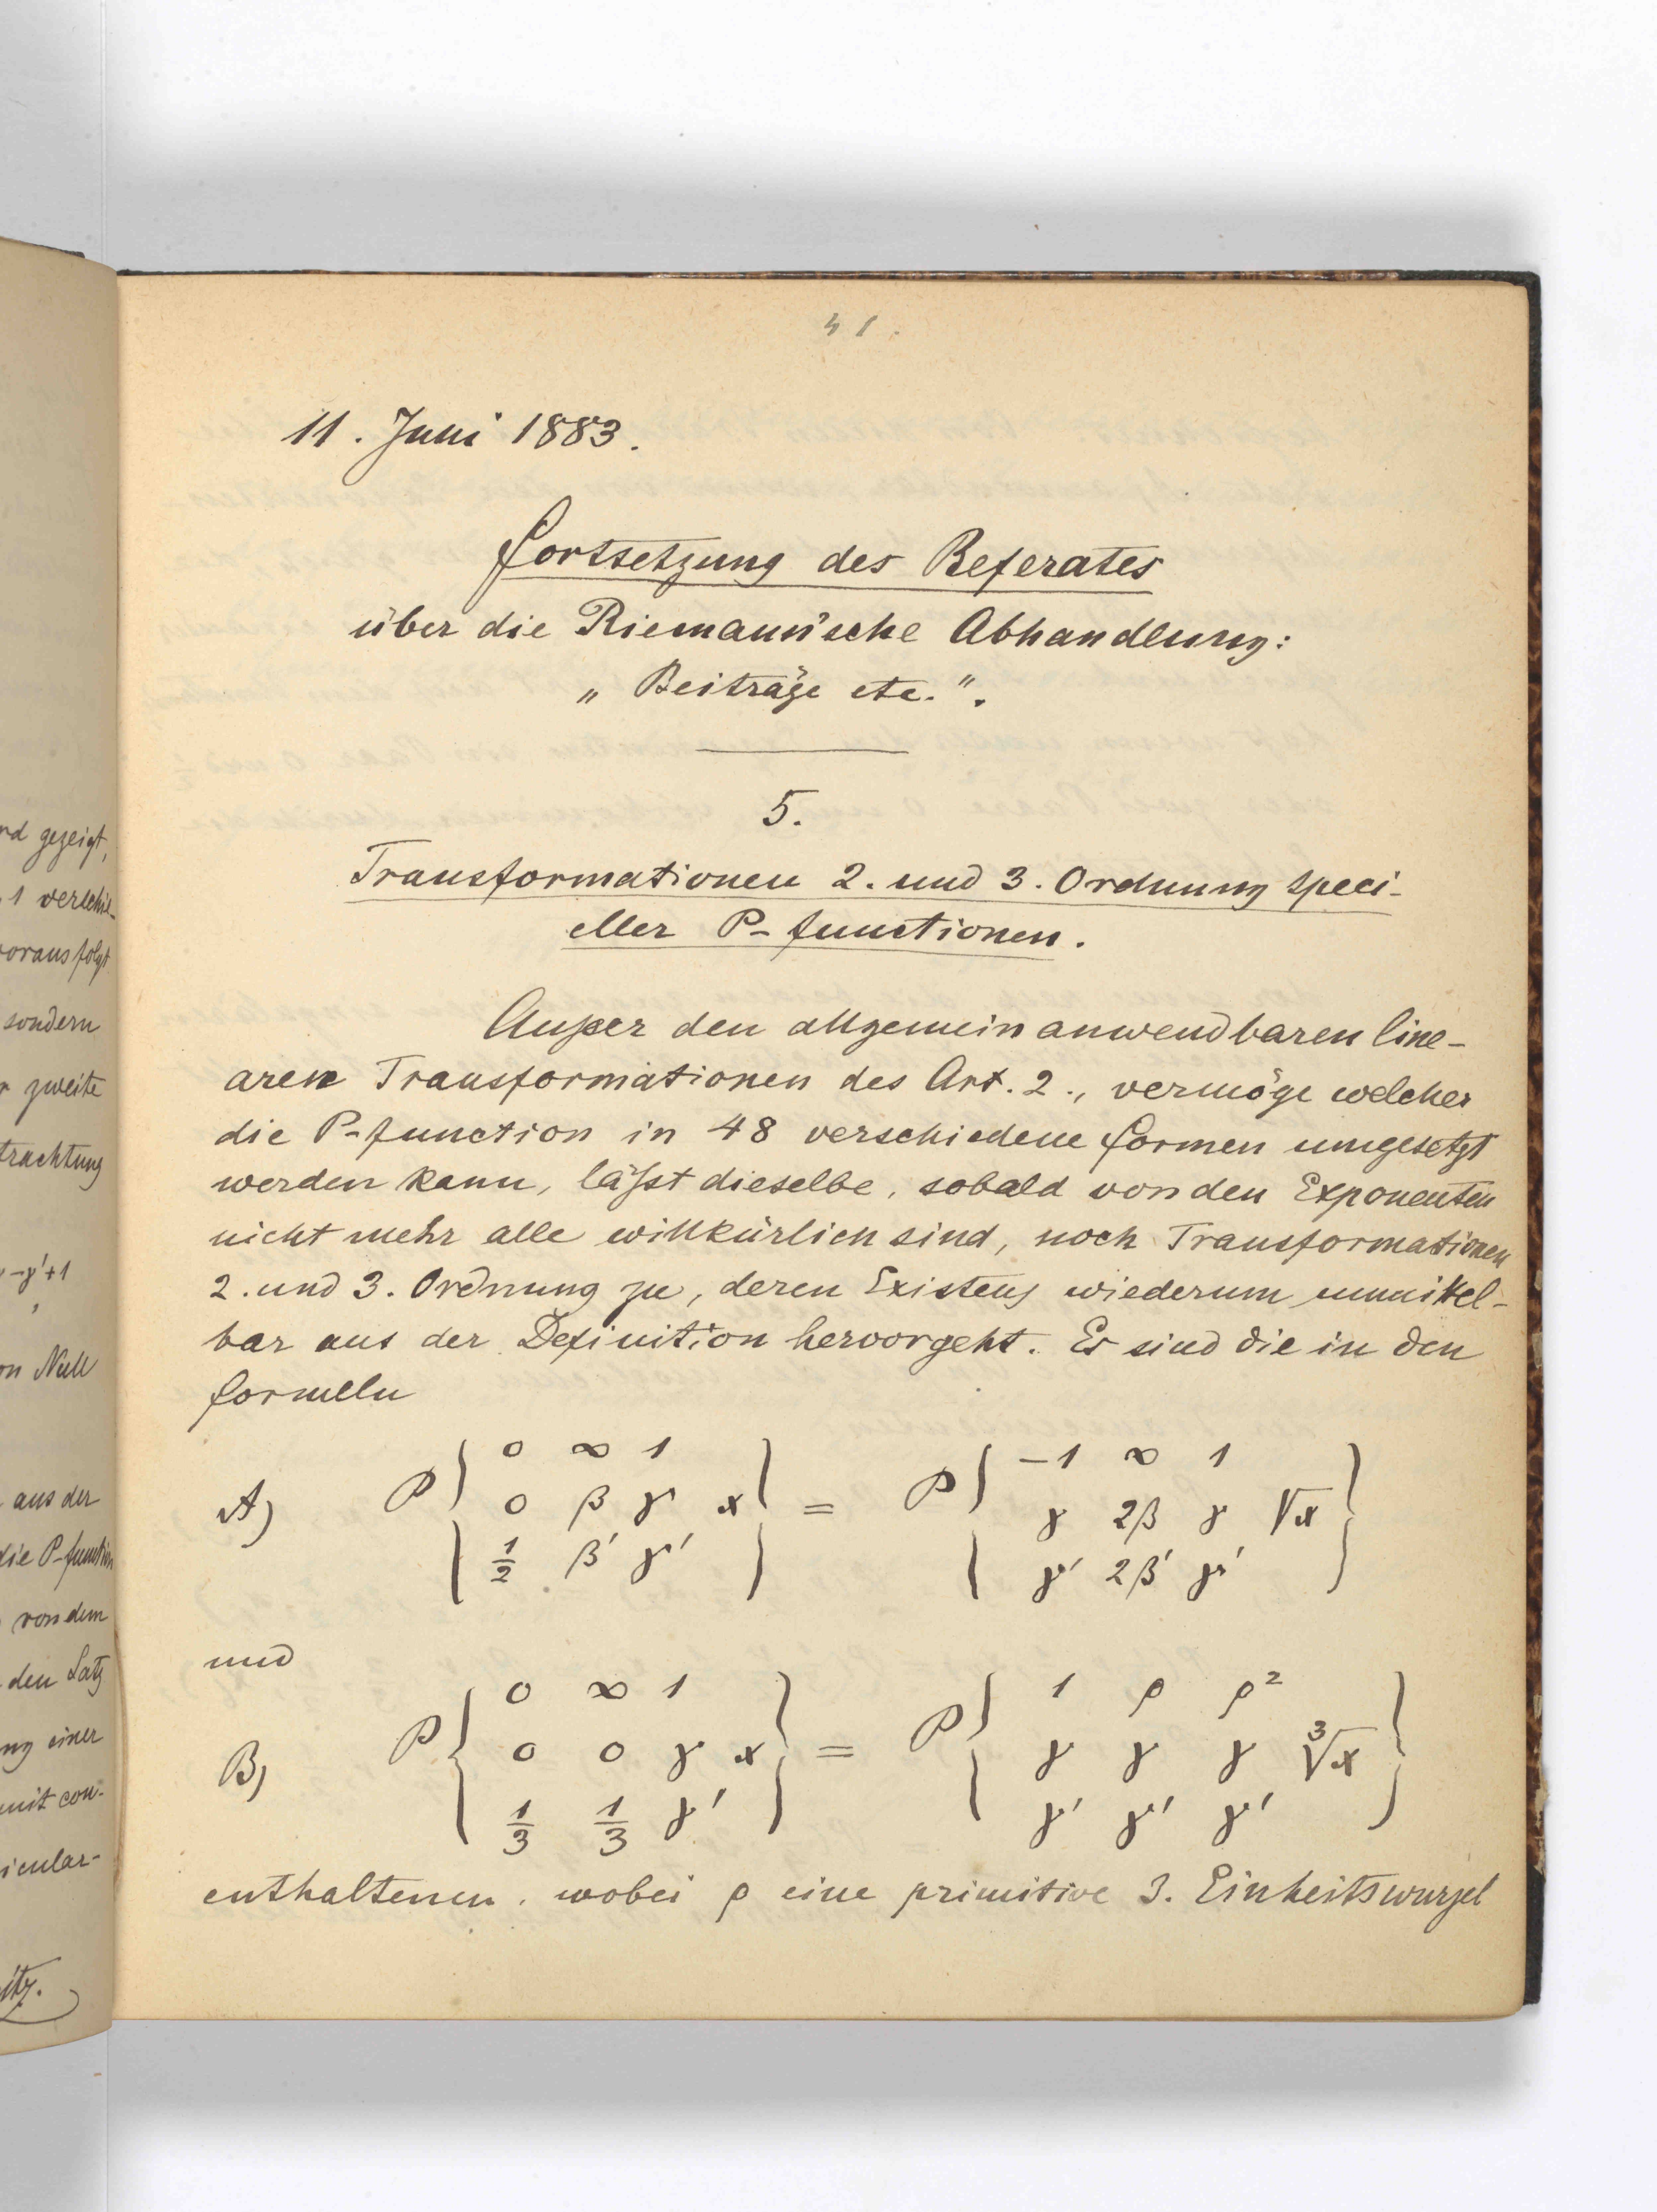 rd gezeigt,
1 verschie-
voraus folgt
sondern
r zweite
trachtung
-γ'+1
on Null
aus der
die P-function
von dem
den Satz
ng einer
mit con-
icular-
itz.
41.
11. Juni 1883.
Fortsetzung des Referates
über die Riemann'sche Abhandlung:
„Beiträge etc.".
5.
Transformationen 2. und 3. Ordnung speci-
eller P-functionen.
Außer den allgemein anwendbaren line-
aren Transformationen des Art. 2., vermöge welcher
die P-function in 48 verschiedene Formen umgesetzt
werden kann, läßt dieselbe, sobald von den Exponenten
nicht mehr alle willkürlich sind, noch Transformationen
2. und 3. Ordnung zu, deren Existenz wiederum unmittel-
bar aus der Definition hervorgeht. Es sind die in den
Formeln
A) P { 0 ∞ 1 } = P { -1 ∞ 1 }
0 β γ x γ 2β γ √x
1/2 β' γ' γ' 2β' γ'
und
B) P { 0 ∞ 1 } = P { 1 ρ ρ² }
0 0 γ x γ γ γ ³√x
1/3 1/3 γ' γ' γ' γ'
enthaltenen, wobei ρ eine primitive 3. Einheitswurzel